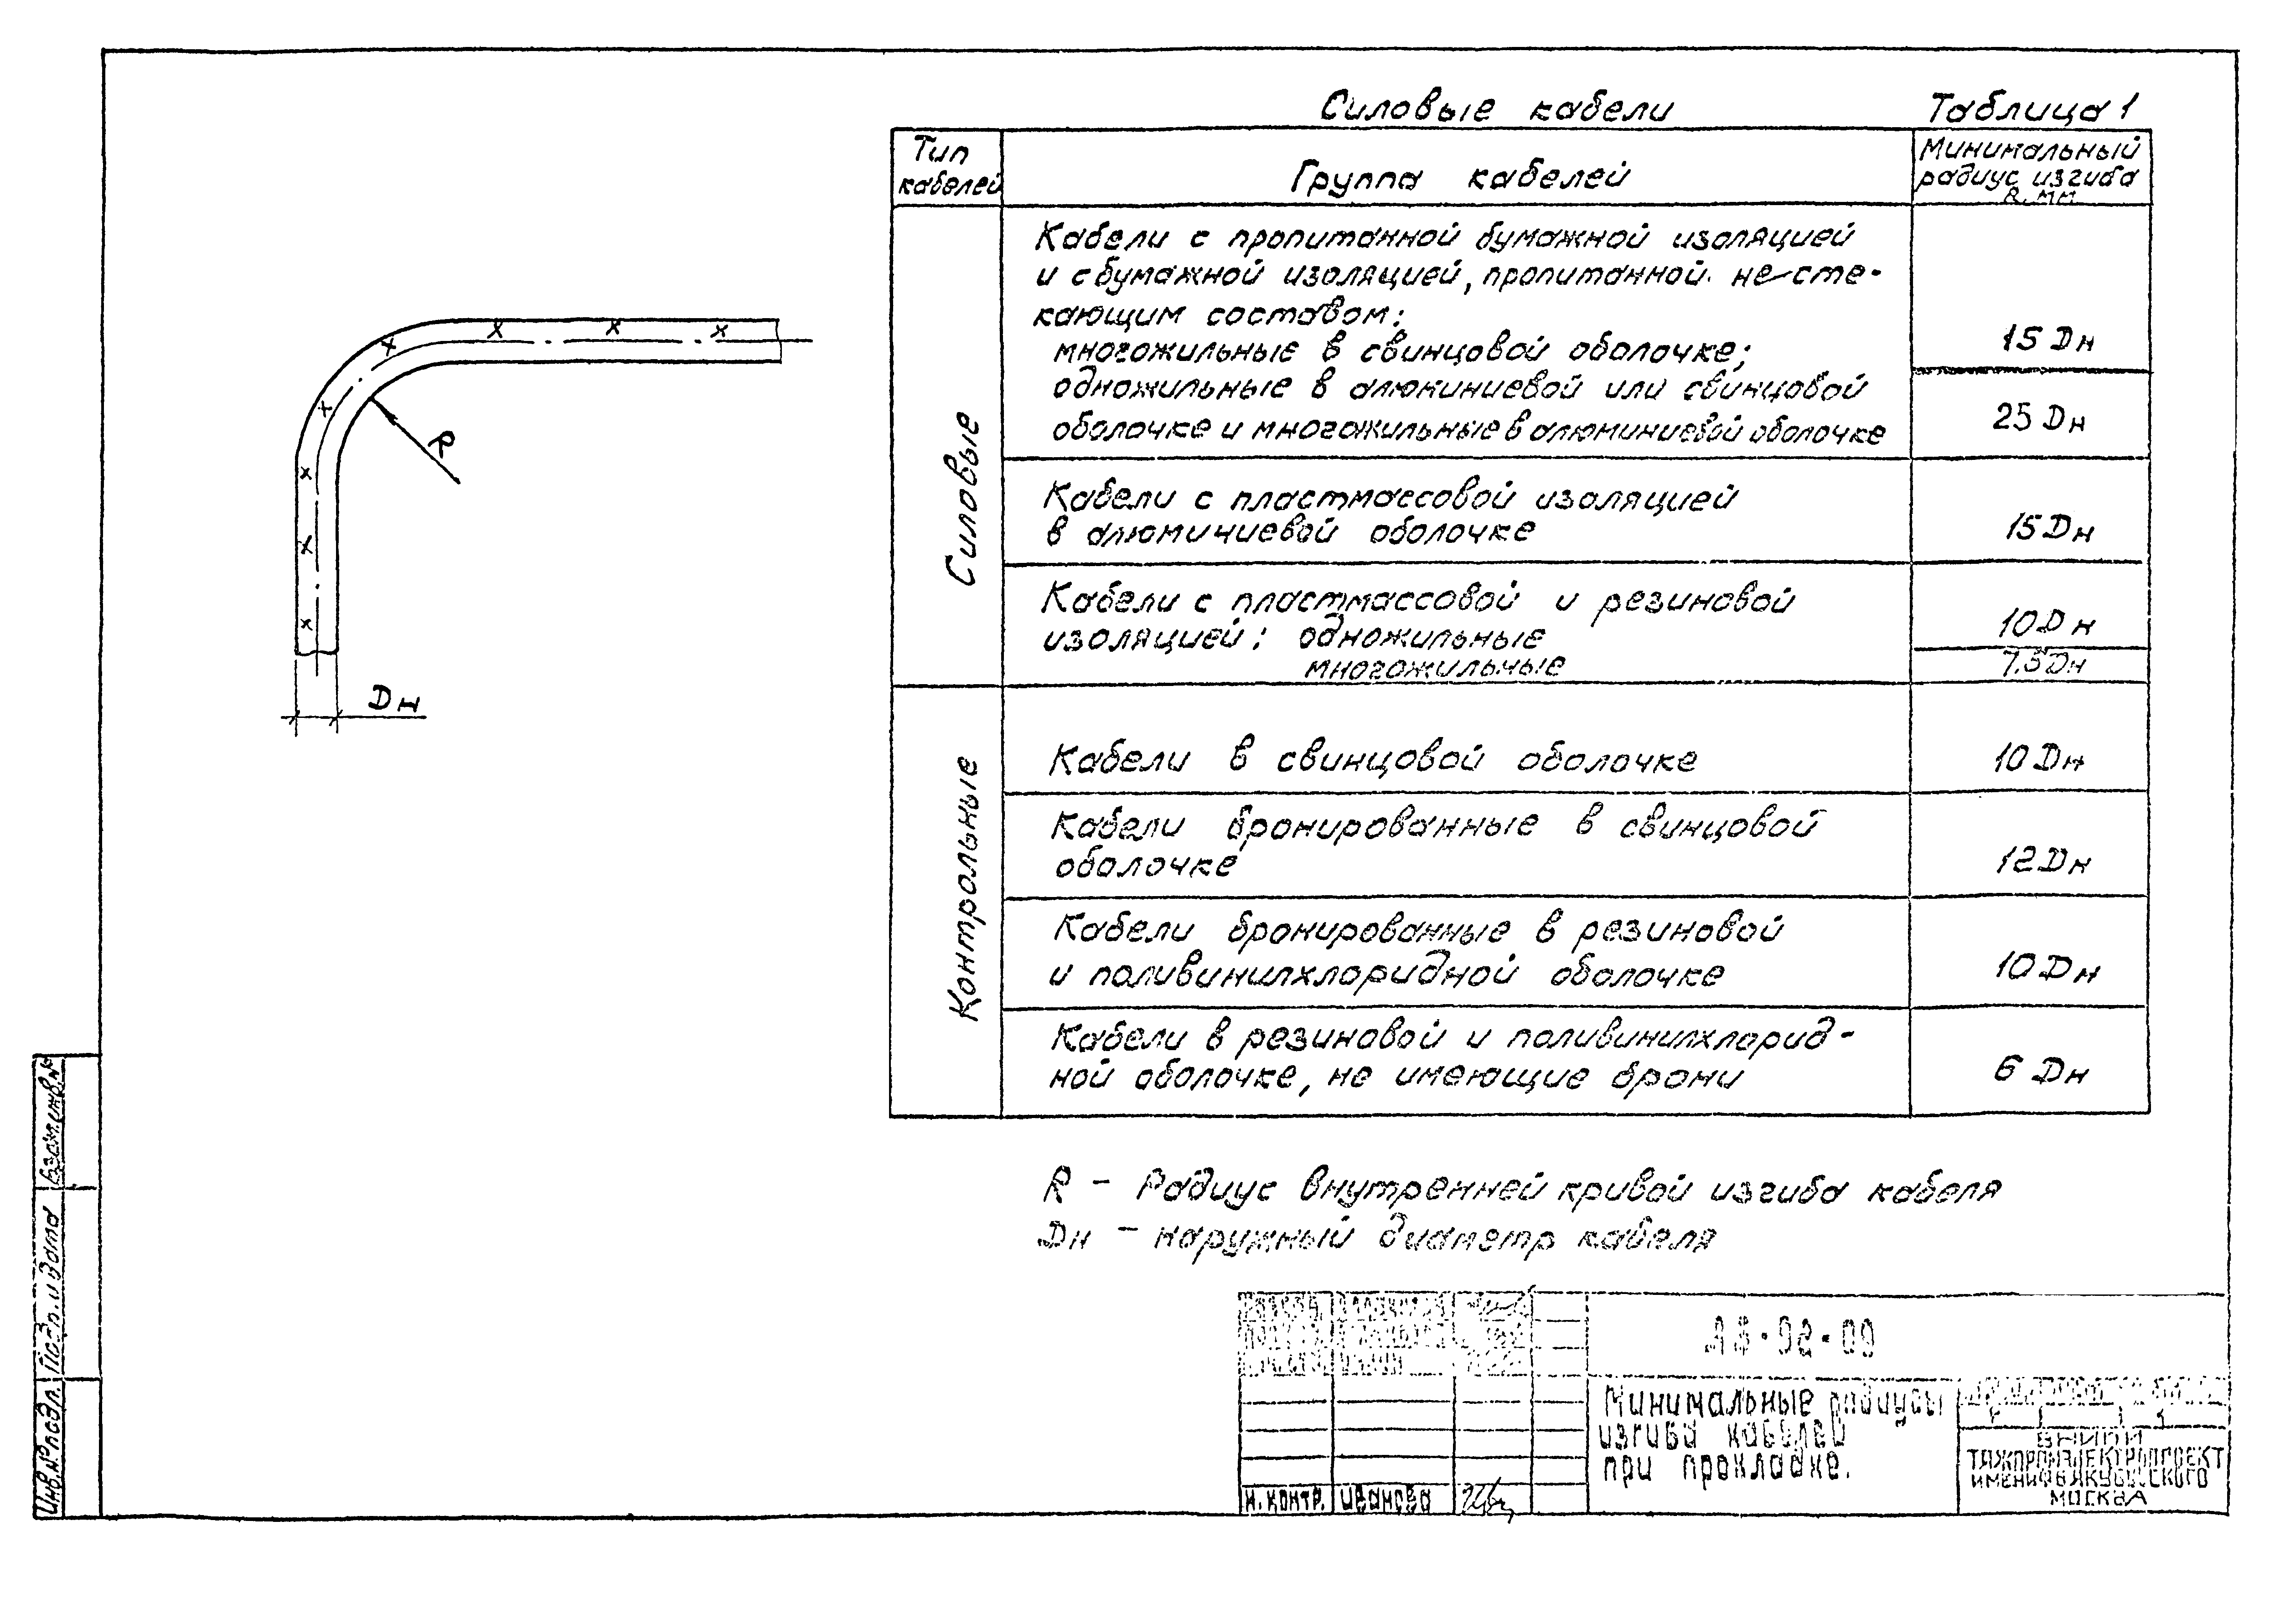 Силовые кабели Таблица 1
Тип
кабелей
Группа кабелей
Минимальный
радиус изгиба
R, мм
Силовые
Кабели с пропитанной бумажной изоляцией
и с бумажной изоляцией, пропитанной не сте-
кающим составом:
многожильные в свинцовой оболочке;
15 Dн
одножильные в алюминиевой или свинцовой
оболочке и многожильные в алюминиевой оболочке
25 Dн
Кабели с пластмассовой изоляцией
в алюминиевой оболочке
15 Dн
Кабели с пластмассовой и резиновой
изоляцией: одножильные
10 Dн
многожильные
7.5 Dн
Контрольные
Кабели в свинцовой оболочке
10 Dн
Кабели бронированные в свинцовой
оболочке
12 Dн
Кабели бронированные в резиновой
и поливинилхлоридной оболочке
10 Dн
Кабели в резиновой и поливинилхлорид-
ной оболочке, не имеющие брони
6 Dн
R
Dн
R - Радиус внутренней кривой изгиба кабеля
Dн - наружный диаметр кабеля
Взам.инв.№
Подп. и дата
Инв.№ подл.
Минимальные радиусы
изгиба кабелей
при прокладке.
ВНИПИ
ТЯЖПРОМЭЛЕКТРОПРОЕКТ
ИМЕНИ Ф.Б.ЯКУБОВСКОГО
МОСКВА
Н. контр. Иванова